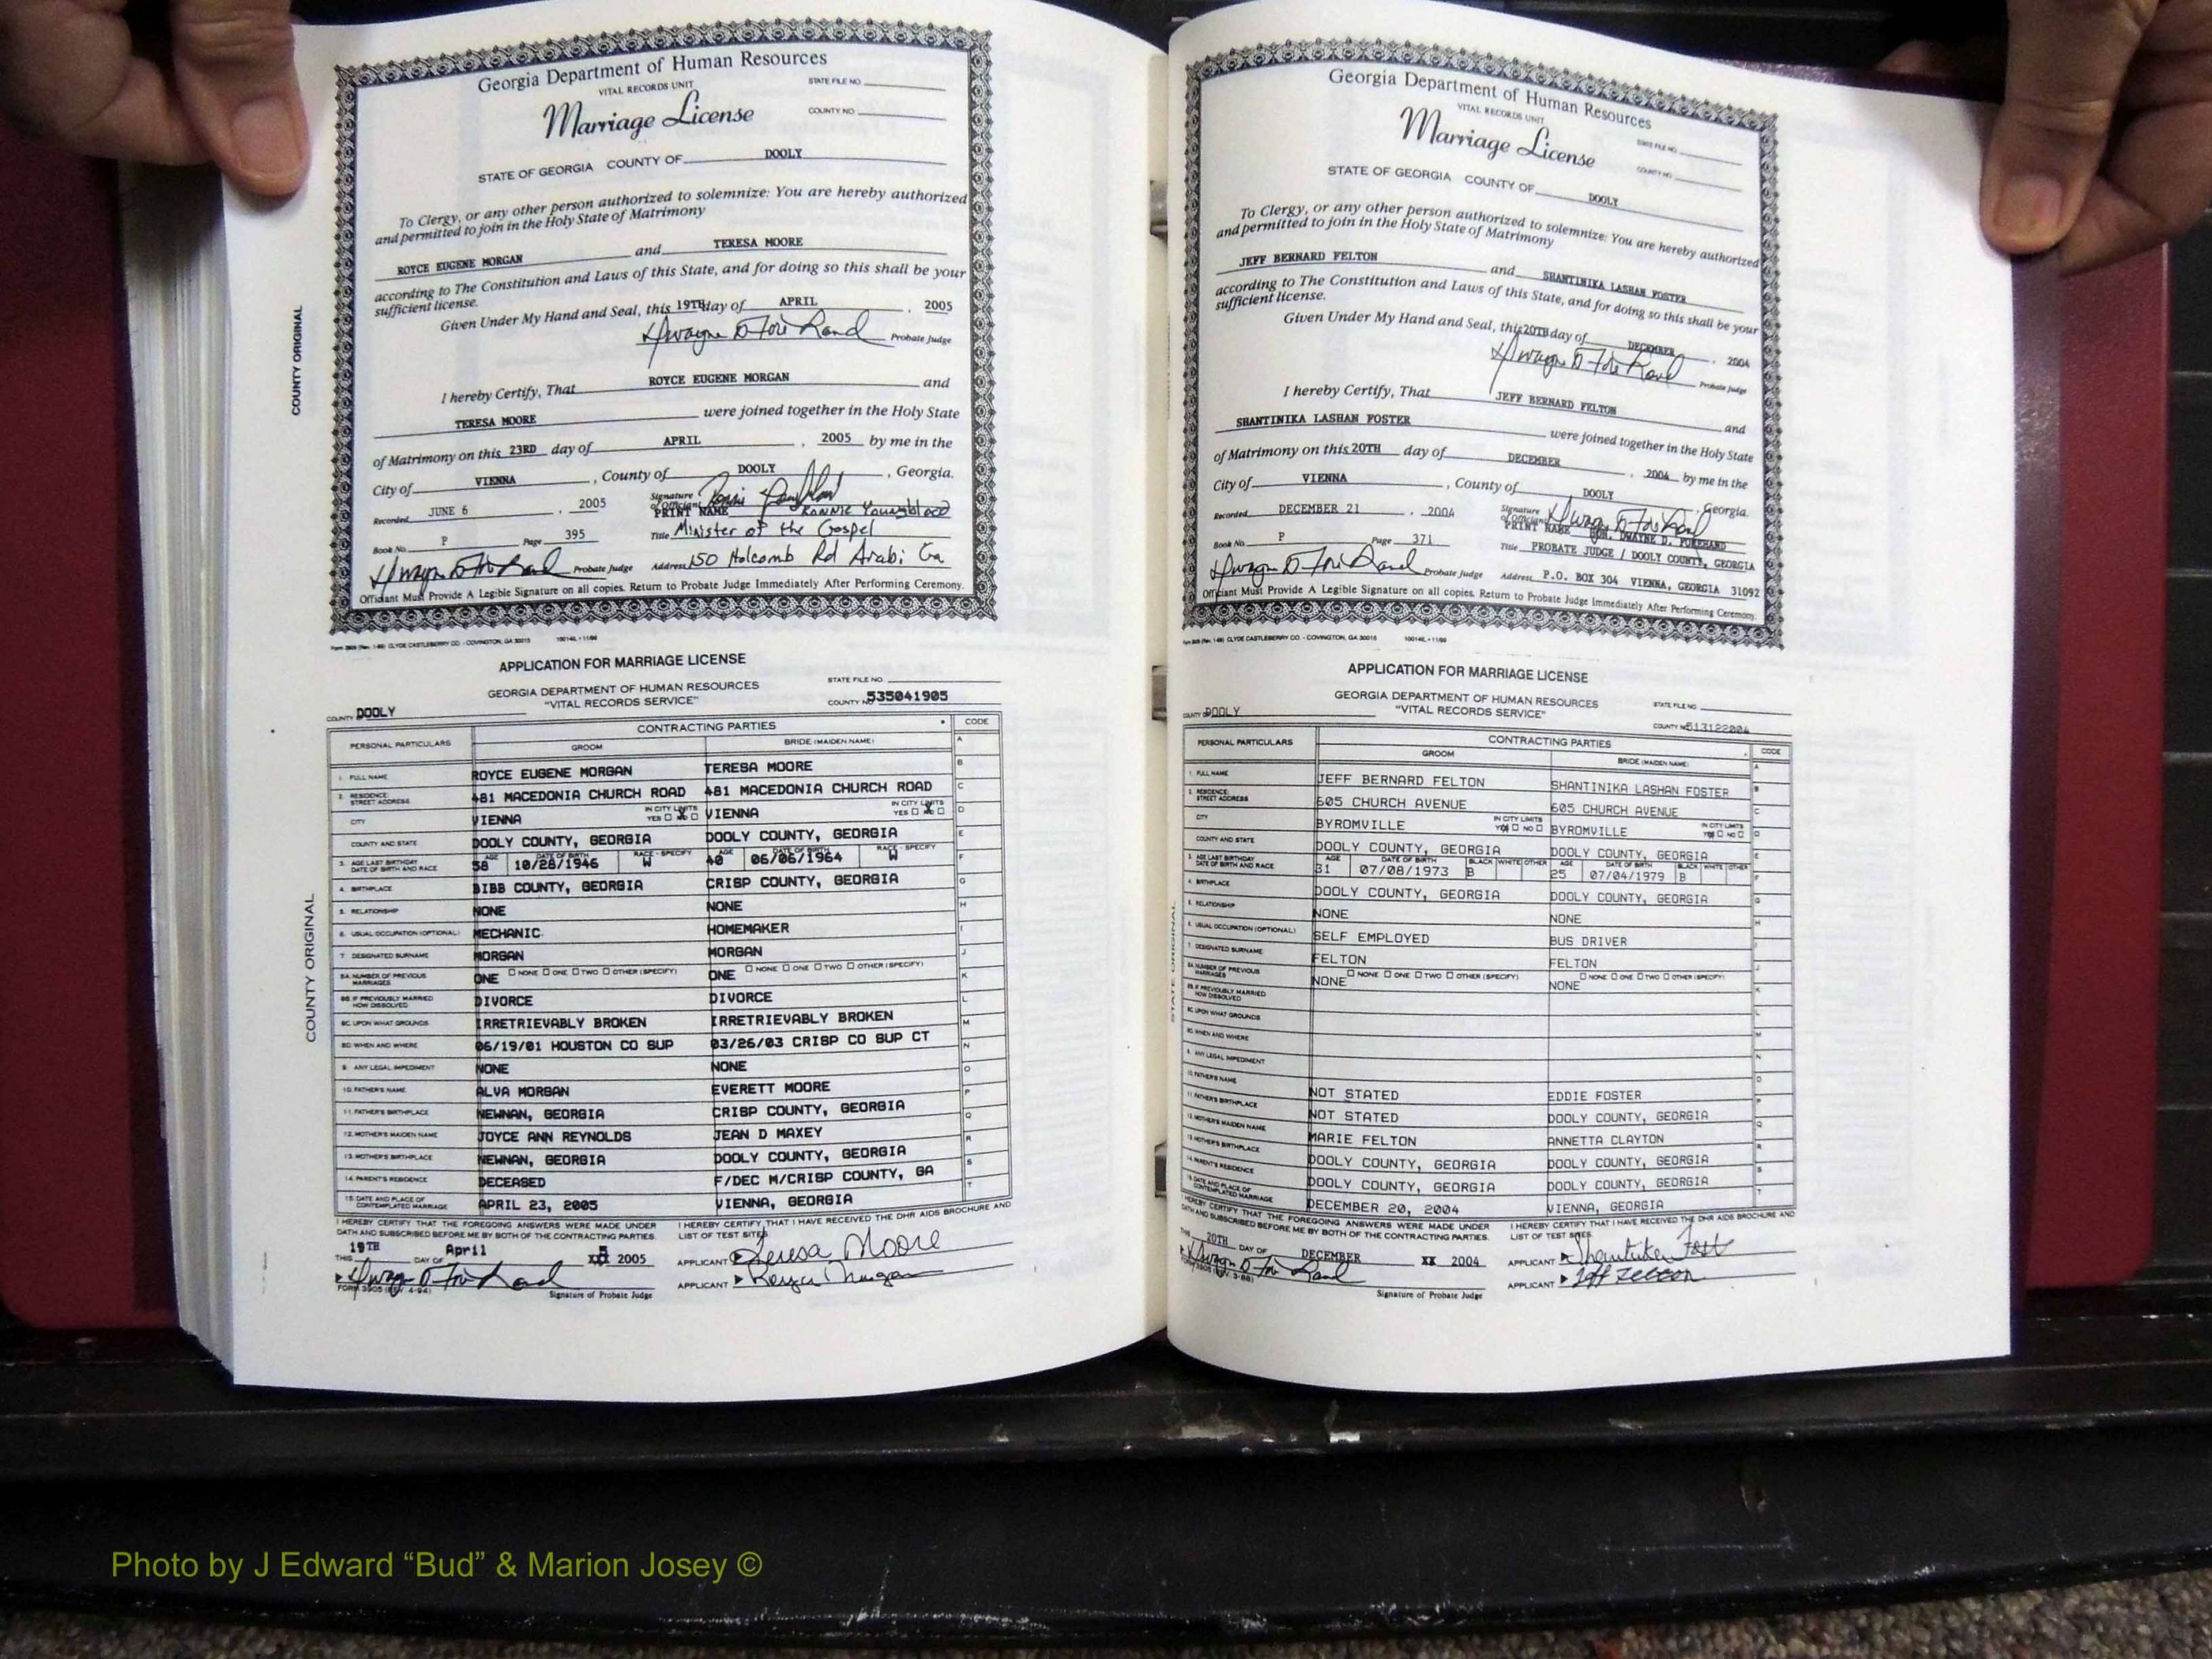 COUNTY ORIGINAL
Georgia Department of Human Resources
VITAL RECORDS UNIT
STATE FILE NO.
Marriage License
COUNTY NO.
STATE OF GEORGIA COUNTY OF DOOLY
To Clergy, or any other person authorized to solemnize: You are hereby authorized
and permitted to join in the Holy State of Matrimony
ROYCE EUGENE MORGAN and TERESA MOORE
according to The Constitution and Laws of this State, and for doing so this shall be your
sufficient license.
Given Under My Hand and Seal, this 19TH day of APRIL, 2005
Probate Judge
I hereby Certify, That ROYCE EUGENE MORGAN and
TERESA MOORE were joined together in the Holy State
of Matrimony on this 23RD day of APRIL, 2005 by me in the
City of VIENNA, County of DOOLY, Georgia.
Recorded JUNE 6, 2005 Signature of Officiant
PRINT NAME RONNIE YOUNGBLOOD
Book No. P Page 395 Title Minister of the Gospel
Probate Judge Address 150 Holcomb Rd Arabi Ga
Officiant Must Provide A Legible Signature on all copies. Return to Probate Judge Immediately After Performing Ceremony.
CLYDE CASTLEBERRY CO. - COVINGTON, GA 30015
COUNTY ORIGINAL
APPLICATION FOR MARRIAGE LICENSE
GEORGIA DEPARTMENT OF HUMAN RESOURCES
"VITAL RECORDS SERVICE"
STATE FILE NO.
COUNTY NO 535041905
COUNTY DOOLY
PERSONAL PARTICULARS CONTRACTING PARTIES CODE
GROOM BRIDE (MAIDEN NAME) A
1. FULL NAME ROYCE EUGENE MORGAN TERESA MOORE B
2. RESIDENCE: STREET ADDRESS 481 MACEDONIA CHURCH ROAD 481 MACEDONIA CHURCH ROAD C
CITY VIENNA IN CITY LIMITS YES □ NO □ VIENNA IN CITY LIMITS YES □ NO □ D
COUNTY AND STATE DOOLY COUNTY, GEORGIA DOOLY COUNTY, GEORGIA E
3. AGE LAST BIRTHDAY DATE OF BIRTH AND RACE AGE 58 DATE OF BIRTH 10/28/1946 RACE - SPECIFY W AGE 40 DATE OF BIRTH 06/06/1964 RACE - SPECIFY W F
4. BIRTHPLACE BIBB COUNTY, GEORGIA CRISP COUNTY, GEORGIA G
5. RELATIONSHIP NONE NONE H
6. USUAL OCCUPATION (OPTIONAL) MECHANIC HOMEMAKER I
7. DESIGNATED SURNAME MORGAN MORGAN J
8A. NUMBER OF PREVIOUS MARRIAGES ONE □ NONE □ ONE □ TWO □ OTHER (SPECIFY) ONE □ NONE □ ONE □ TWO □ OTHER (SPECIFY) K
8B. IF PREVIOUSLY MARRIED HOW DISSOLVED DIVORCE DIVORCE L
8C. UPON WHAT GROUNDS IRRETRIEVABLY BROKEN IRRETRIEVABLY BROKEN M
8D. WHEN AND WHERE 06/19/01 HOUSTON CO SUP 03/26/03 CRISP CO SUP CT N
9. ANY LEGAL IMPEDIMENT NONE NONE O
10. FATHER'S NAME ALVA MORGAN EVERETT MOORE P
11. FATHER'S BIRTHPLACE NEWNAN, GEORGIA CRISP COUNTY, GEORGIA Q
12. MOTHER'S MAIDEN NAME JOYCE ANN REYNOLDS JEAN D MAXEY R
13. MOTHER'S BIRTHPLACE NEWNAN, GEORGIA DOOLY COUNTY, GEORGIA S
14. PARENT'S RESIDENCE DECEASED F/DEC M/CRISP COUNTY, GA T
15. DATE AND PLACE OF CONTEMPLATED MARRIAGE APRIL 23, 2005 VIENNA, GEORGIA
I HEREBY CERTIFY THAT THE FOREGOING ANSWERS WERE MADE UNDER
OATH AND SUBSCRIBED BEFORE ME BY BOTH OF THE CONTRACTING PARTIES.
I HEREBY CERTIFY THAT I HAVE RECEIVED THE DHR AIDS BROCHURE AND
LIST OF TEST SITES
THIS 19TH DAY OF April 2005
APPLICANT Teresa Moore
APPLICANT Royce Morgan
FORM 3905 (REV. 4-94)
Signature of Probate Judge
Georgia Department of Human Resources
VITAL RECORDS UNIT
STATE FILE NO.
Marriage License
COUNTY NO.
STATE OF GEORGIA COUNTY OF DOOLY
To Clergy, or any other person authorized to solemnize: You are hereby authorized
and permitted to join in the Holy State of Matrimony
JEFF BERNARD FELTON and SHANTINIKA LASHAN FOSTER
according to The Constitution and Laws of this State, and for doing so this shall be your
sufficient license.
Given Under My Hand and Seal, this 20TH day of DECEMBER, 2004
Probate Judge
I hereby Certify, That JEFF BERNARD FELTON and
SHANTINIKA LASHAN FOSTER were joined together in the Holy State
of Matrimony on this 20TH day of DECEMBER, 2004 by me in the
City of VIENNA, County of DOOLY, Georgia.
Recorded DECEMBER 21, 2004 Signature of Officiant
PRINT NAME HON. DWAYNE D. FOREHAND
Book No. P Page 371 Title PROBATE JUDGE / DOOLY COUNTY, GEORGIA
Probate Judge Address P.O. BOX 304 VIENNA, GEORGIA 31092
Officiant Must Provide A Legible Signature on all copies. Return to Probate Judge Immediately After Performing Ceremony.
CLYDE CASTLEBERRY CO. - COVINGTON, GA 30015
STATE ORIGINAL
APPLICATION FOR MARRIAGE LICENSE
GEORGIA DEPARTMENT OF HUMAN RESOURCES
"VITAL RECORDS SERVICE"
STATE FILE NO.
COUNTY NO 513122004
COUNTY DOOLY
PERSONAL PARTICULARS CONTRACTING PARTIES CODE
GROOM BRIDE (MAIDEN NAME) A
1. FULL NAME JEFF BERNARD FELTON SHANTINIKA LASHAN FOSTER B
2. RESIDENCE: STREET ADDRESS 605 CHURCH AVENUE 605 CHURCH AVENUE C
CITY BYROMVILLE IN CITY LIMITS YES □ NO □ BYROMVILLE IN CITY LIMITS YES □ NO □ D
COUNTY AND STATE DOOLY COUNTY, GEORGIA DOOLY COUNTY, GEORGIA E
3. AGE LAST BIRTHDAY DATE OF BIRTH AND RACE AGE 31 DATE OF BIRTH 07/08/1973 BLACK WHITE OTHER B AGE 25 DATE OF BIRTH 07/04/1979 BLACK WHITE OTHER B F
4. BIRTHPLACE DOOLY COUNTY, GEORGIA DOOLY COUNTY, GEORGIA G
5. RELATIONSHIP NONE NONE H
6. USUAL OCCUPATION (OPTIONAL) SELF EMPLOYED BUS DRIVER I
7. DESIGNATED SURNAME FELTON FELTON J
8A. NUMBER OF PREVIOUS MARRIAGES NONE □ NONE □ ONE □ TWO □ OTHER (SPECIFY) NONE □ NONE □ ONE □ TWO □ OTHER (SPECIFY) K
8B. IF PREVIOUSLY MARRIED HOW DISSOLVED L
8C. UPON WHAT GROUNDS M
8D. WHEN AND WHERE N
9. ANY LEGAL IMPEDIMENT O
10. FATHER'S NAME NOT STATED EDDIE FOSTER P
11. FATHER'S BIRTHPLACE NOT STATED DOOLY COUNTY, GEORGIA Q
12. MOTHER'S MAIDEN NAME MARIE FELTON ANNETTA CLAYTON R
13. MOTHER'S BIRTHPLACE DOOLY COUNTY, GEORGIA DOOLY COUNTY, GEORGIA S
14. PARENT'S RESIDENCE DOOLY COUNTY, GEORGIA DOOLY COUNTY, GEORGIA T
15. DATE AND PLACE OF CONTEMPLATED MARRIAGE DECEMBER 20, 2004 VIENNA, GEORGIA
I HEREBY CERTIFY THAT THE FOREGOING ANSWERS WERE MADE UNDER
OATH AND SUBSCRIBED BEFORE ME BY BOTH OF THE CONTRACTING PARTIES.
I HEREBY CERTIFY THAT I HAVE RECEIVED THE DHR AIDS BROCHURE AND
LIST OF TEST SITES
THIS 20TH DAY OF DECEMBER XX 2004
APPLICANT
APPLICANT Jeff Felton
Signature of Probate Judge
Photo by J Edward “Bud” & Marion Josey ©